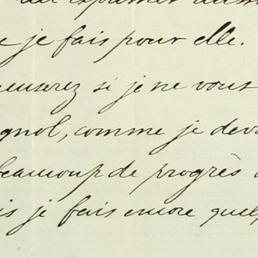 exprimer aussi
e je fais pour elle.
cuserez si je ne vous
gnol, comme je deva
beaucoup de progrès
is je fais encore quelq